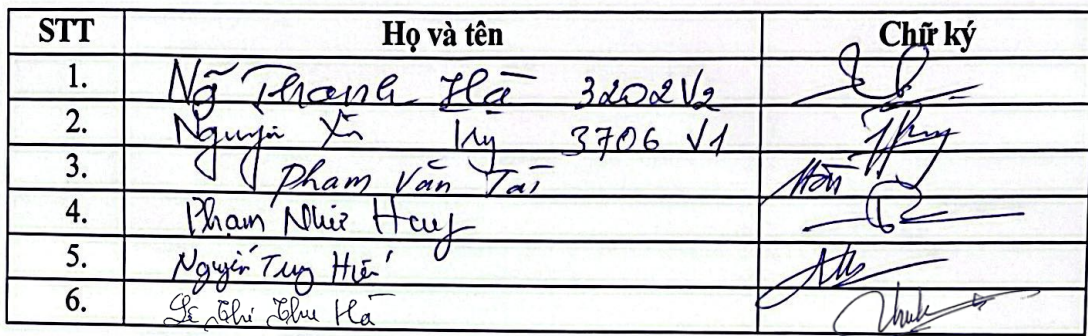 STT Họ và tên Chữ ký
1. Ng̃ Thanh Hà 3202 V2
2. Nguyễn 3706 V1
3. Phạm Văn Tài
4. Phạm Như Huy
5. Nguyễn Hiếu
6. Lê Thị Thu Hà